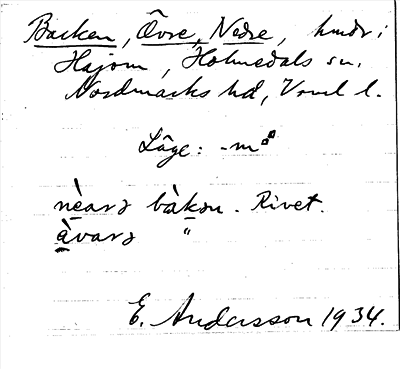 Backen, Övre, Nedre, hmdr i
Hajom, Holmedals sn.
Nordmarks hd, Vrml l.
Läge: -må
nèarə bàkən. Rivet.
àvarə "
E. Andersson 1934.